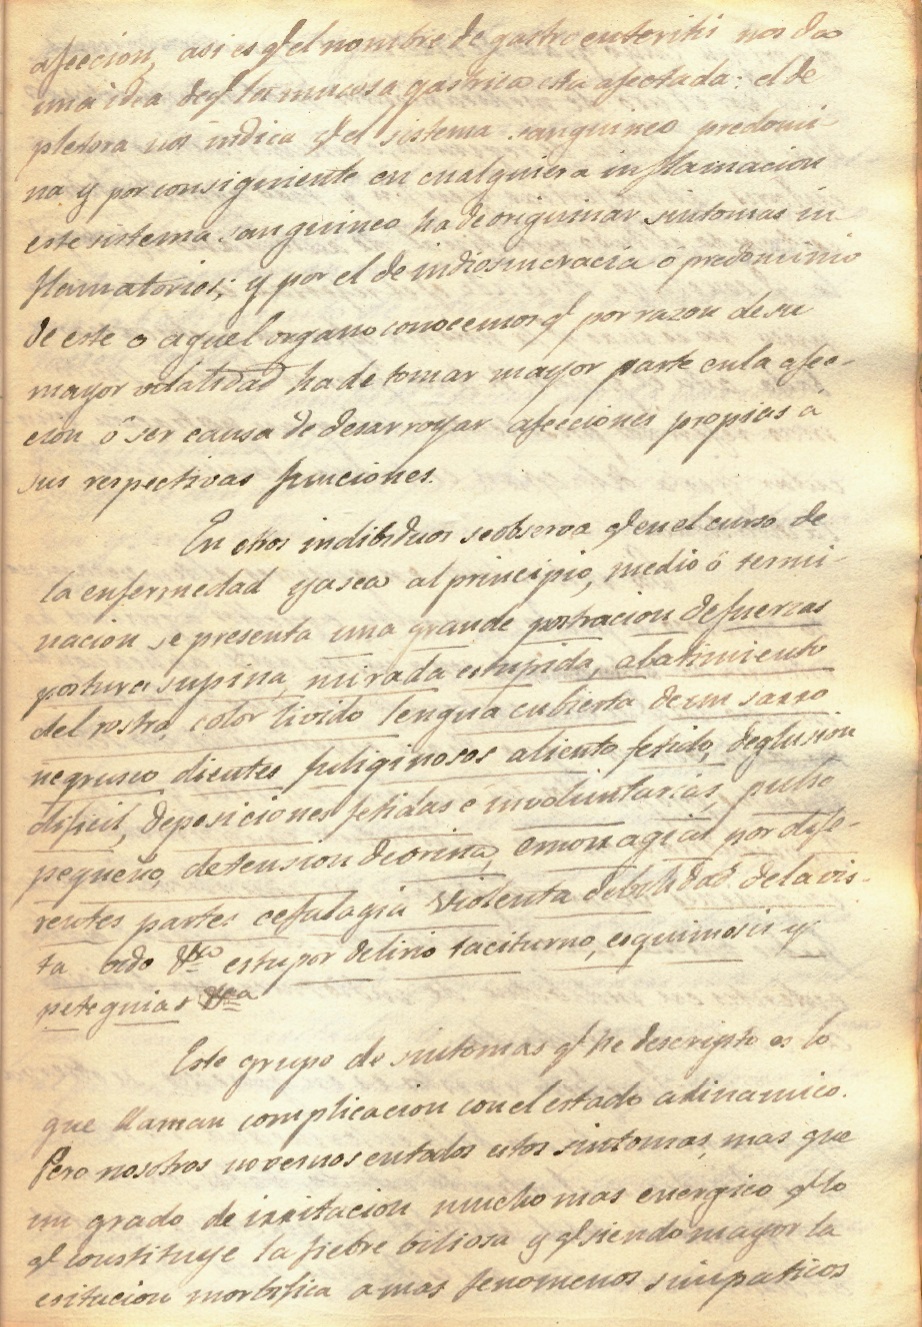 afeccion, asi es qe el nombre de gastroenteritis nos da
una idea de qe la mucosa gastrica esta afectada: el de
pletora nos indica qe el sistema sanguineo predomi
na y por consiguiente en cualquiera inflamacion
este sistema sanguineo ha de originar sintomas in
flamatorios; y por el de indiosincracia o predominio
de este o aquel organo conocemos qe por razon de su
mayor vitalidad ha de tomar mayor parte en la afec-
cion ó ser causa de desarroyar afecciones propias á
sus respectivas funciones.
En otros indibiduos se observa qe en el curso de
la enfermedad ya sea al principio, medio ó termi-
nacion se presenta una grande postracion de fuerzas
postura supina, mirada estupida, abatimiento
del rostro, color livido lengua cubierta de un sarro
negrusco, dientes fuliginosos aliento fetido, deglusion
dificil, deposiciones fetidas e involuntarias, pulso
pequeño, detension de orina, emorragias por dife-
rentes partes cefalagia violenta debilidad de la vis-
ta oido &a estupor delirio taciturno, esquimosis y
peteguias &ca
Este grupo de sintomas qe he descripto es lo
que llaman complicacion con el estado adinamico.
Pero nosotros no vemos en todos estos sintomas, mas que
un grado de irritacion mucho mas energico qe lo
qe constituye la fiebre biliosa y qe siendo mayor la
esitacion morbifica a mas fenomenos simpaticos